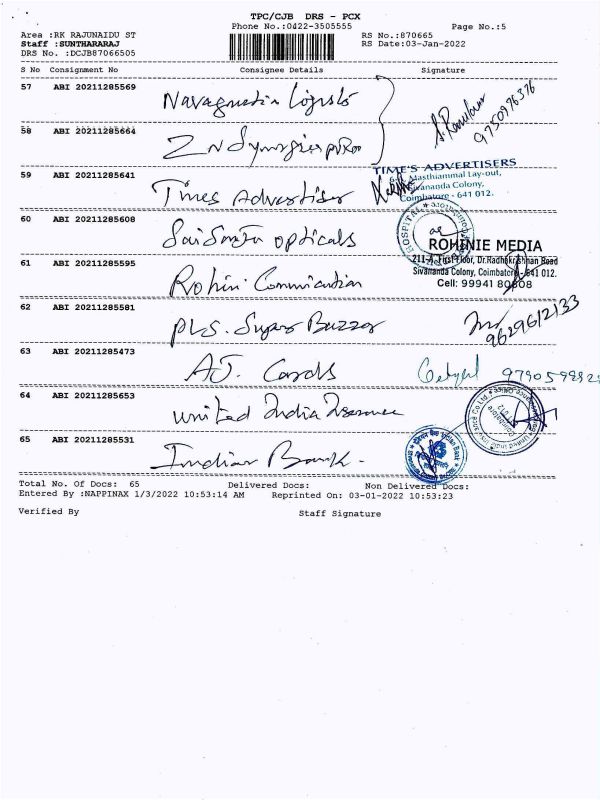 TPC/CJB DRS - PCX
Phone No.:0422-3505555
Page No.:5
Area :RK RAJUNAIDU ST
RS No.:870665
Staff :SUNTHARARAJ
RS Date:03-Jan-2022
DRS No. :DCJB87066505
S No Consignment No Consignee Details Signature
57 ABI 20211285569
58 ABI 20211285664
9750976376
59 ABI 20211285641 Times Advertiser
TIME'S ADVERTISERS
Masthiammal Lay-out,
Sivananda Colony,
Coimbatore - 641 012.
60 ABI 20211285608 Opticals
HOSPITAL
ROHINIE MEDIA
211-A, First Floor, Dr.Radhakrishnan Road
Sivananda Colony, Coimbatore - 641 012.
Cell: 99941 80808
61 ABI 20211285595 Rohini Communication
62 ABI 20211285581 PLS. Super Buzzar
9629612133
63 ABI 20211285473 AJ. Cards
64 ABI 20211285653 United India Insurance
65 ABI 20211285531 Indian Bank
Total No. Of Docs: 65 Delivered Docs: Non Delivered Docs:
Entered By :NAPPINAX 1/3/2022 10:53:14 AM Reprinted On: 03-01-2022 10:53:23
Verified By Staff Signature